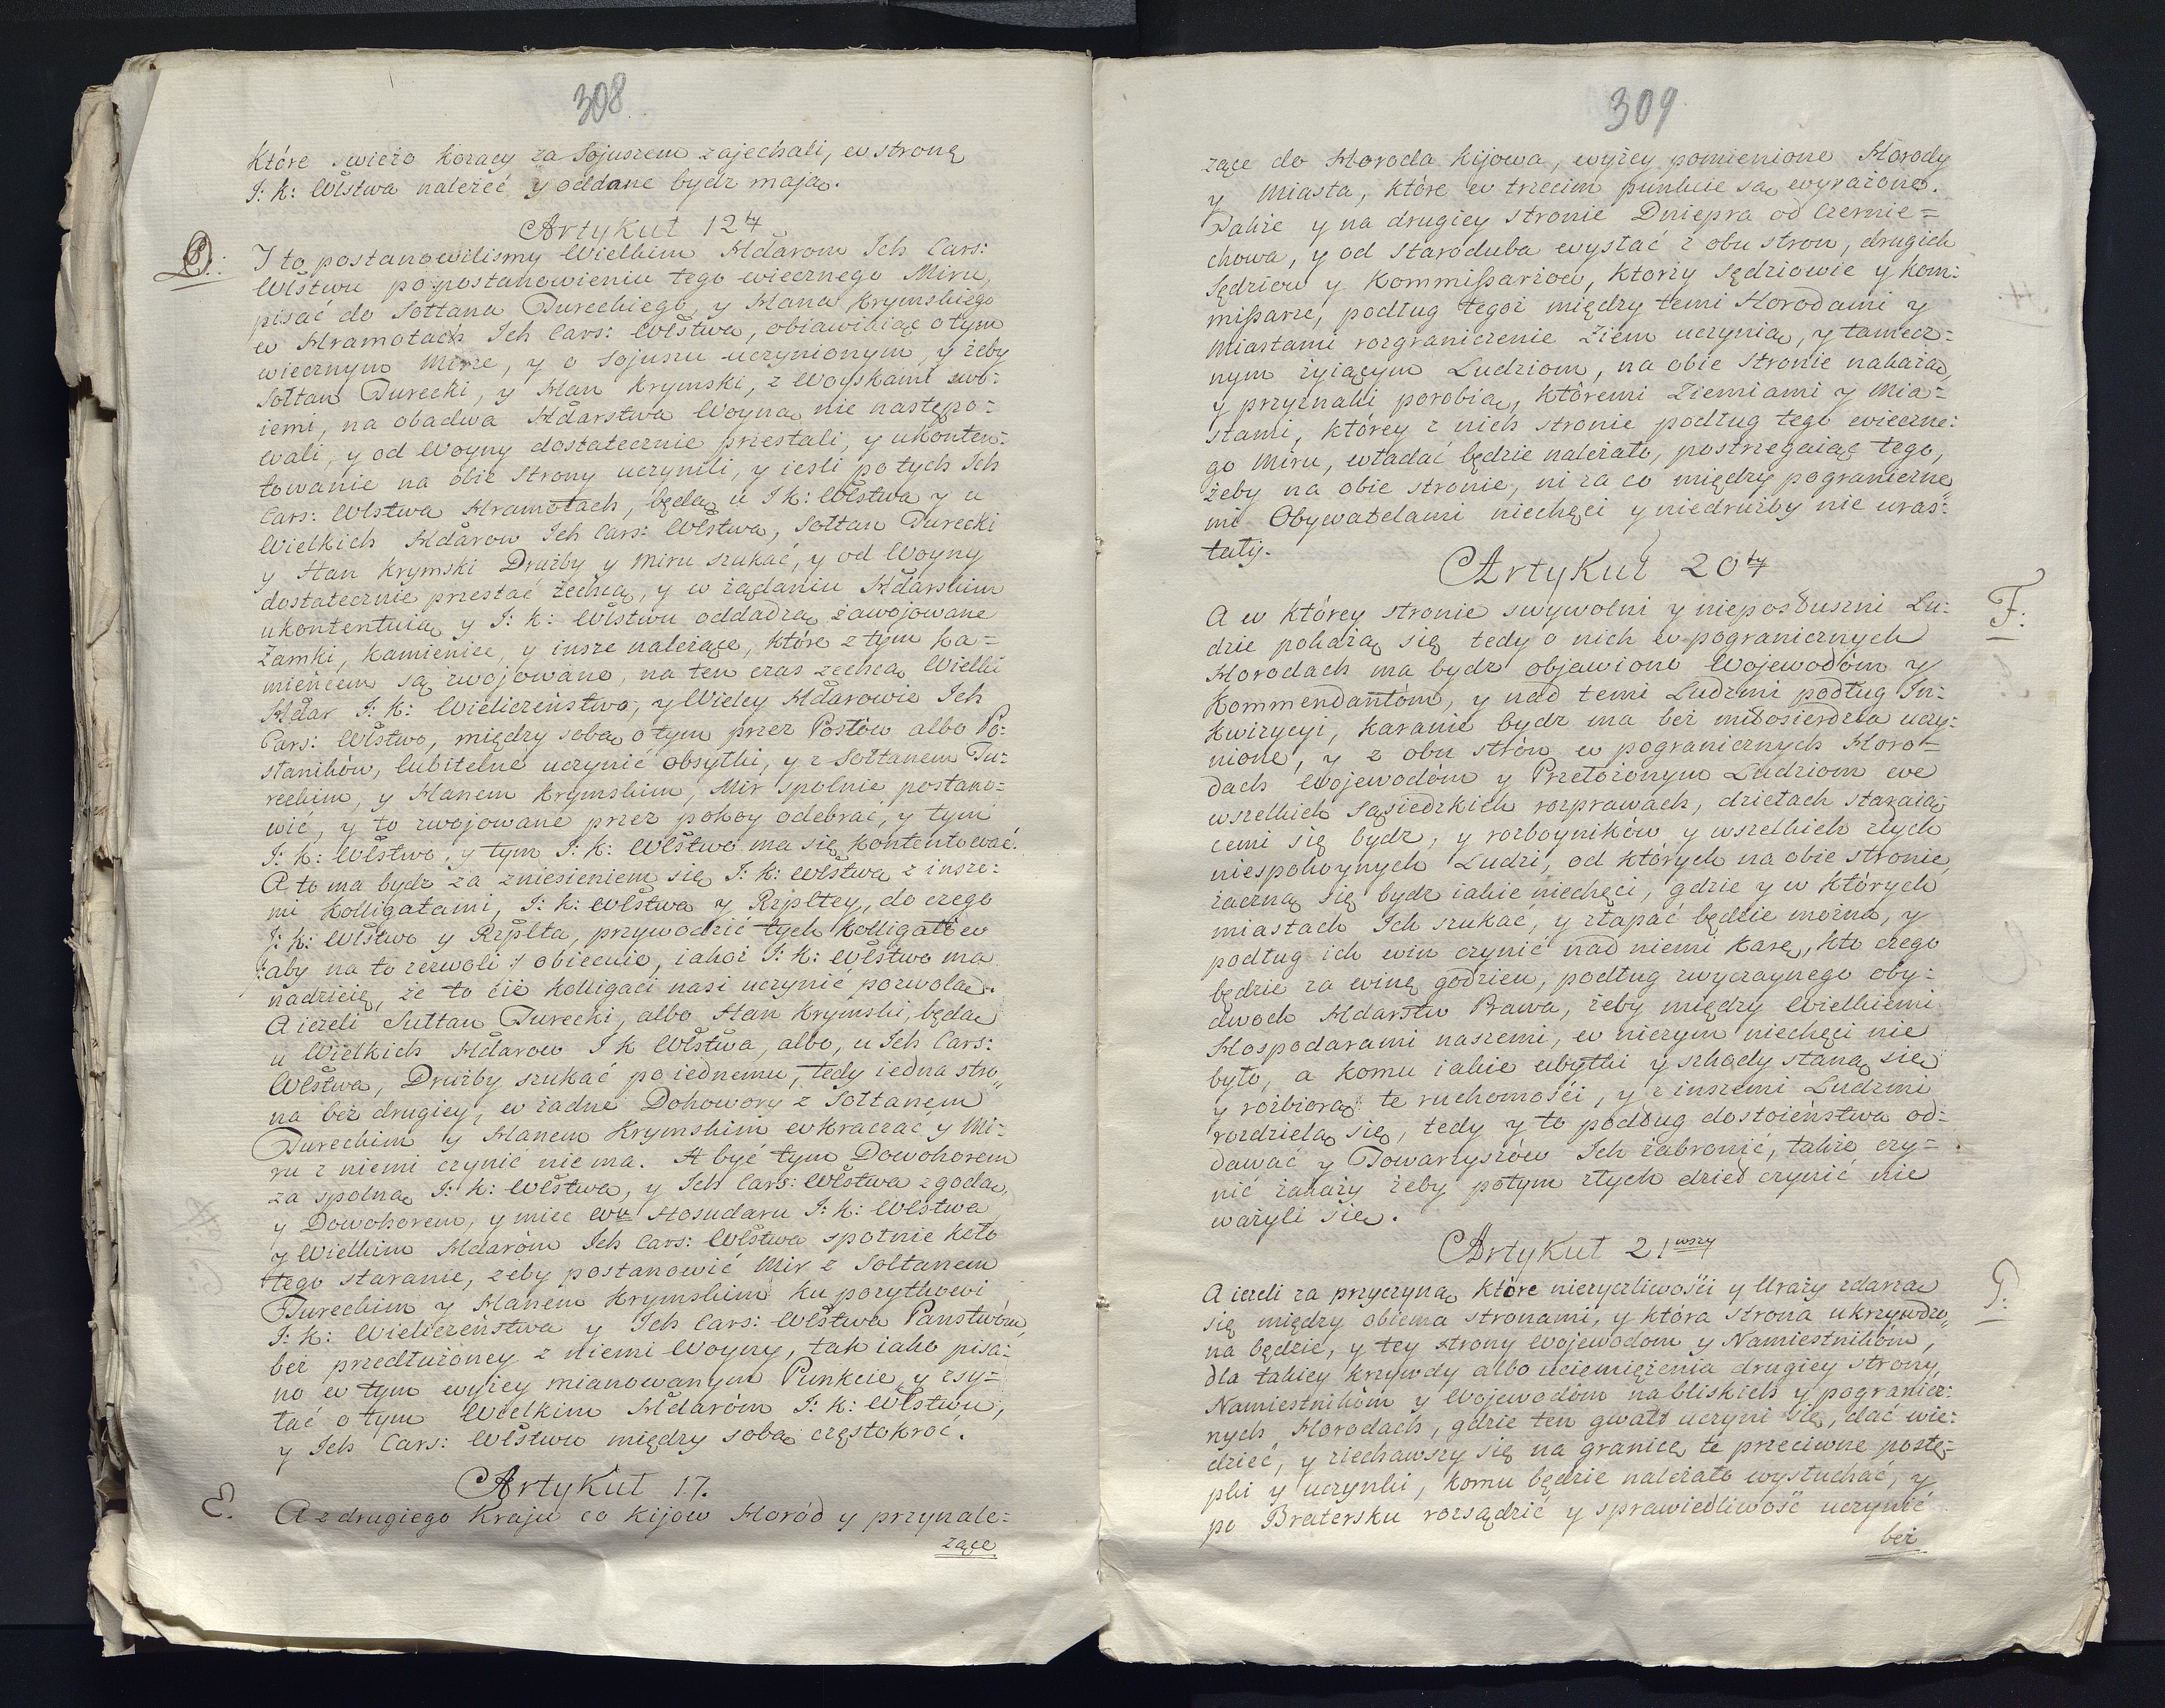 308
które swieżo kozacy za Sojuszem zajechali, w stronę
J: K: Włstwa należeć y oddane bydz mają.
Artykuł 12ty
D: I to postanowilismy Wielkim Hdarom Ich Cars:
Wlstwu po postanowieniu tego wiecznego Miru,
pisać do Sołtana Tureckiego, y Hana Krymskiego
w Hramotach Ich Cars: Włstwa, obiawiaiąc o tym
wiecznym Mirze, y o Sojuszu uczynionym, y żeby
Sołtan Turecki, y Han Krymski, z Woyskami swo=
iemi, na obadwa Hdarstwa Woyną nie następo=
wali, y od Woyny dostatecznie przestali, y ukonten=
towanie na obie Strony uczynili, y iesli po tych Ich
Cars: Wlstwa Hramotach, będą u J K: Włstwa y u
Wielkich Hdarow Ich Cars: Włstwa, Sołtan Turecki
y Han Krymski Drużby y Miru szukać, y od Woyny
dostatecznie przestać zechcą, y w żądaniu Hdarskim
ukontentuią y J: K: Wlstwu oddadzą zawojowane
Zamki, Kamieniec, y insze należące, które z tym Ka=
mieńcem są zwojowane, na ten czas zechcą Wielki
Hdar J: K: Wieliczeństwo, y Wielcy Hdarowie Ich
Cars: Wlstwo, między sobą o tym przez Posłów albo Po=
słaników, lubitelne uczynić obsyłki, y z Sołtanem Tu=
reckim, y Hanem Krymskim, Mir spolnie postano=
wić, y to zwojowane przez pokoy odebrać, y tym
J: K: Wlstwo, y tym J: K: Wlstwo ma się kontentować.
A to ma bydz za zniesieniem się J: K: Wlstwa z insze=
mi Kolligatami, J: K: Wlstwa y Rzpltey, do czego
J: K: Wlstwo y Rzplta, przywodzić tych Kolligatów
/:aby na to zezwoli:/ obiecuie, iakoż J: K: Wlstwo ma
nadzieię, że to ciż Kolligaci nasi uczynić pozwolą.
A ieżeli Sułtan Turecki, albo Han Krymski, będą
u Wielkich Hdarow J K Wlstwa, albo, u Ich Cars:
Wlstwa, Drużby szukać po iednemu, tedy iedna stro=
na bez drugiey, w żadne Dohowory z Sołtanem
Tureckim y Hanem Krymskim wkraczać y Mi=
ru z niemi czynić nie ma. A być tym Dowohorem
za spolną J: K: Wlstwa, y Ich Cars: Wlstwa zgodą,
y Dowohorem, y miec Wu Hosudaru J: K: Wlstwa
y Wielkim Hdaróm Ich Cars: Wlstwa społnie koło
tego staranie, żeby postanowić Mir z Sołtanem
Tureckim y Hanem Krymskim ku pozytkowi
J: K: Wieliczeństwa y Ich Cars: Wlstwa Panstwóm,
bez przedłużoney z niemi Woyny, tak iako pisa=
no w tym wyżey mianowanym Punkcie y zsy=
łać o tym Wielkim Hdaróm J: K: Wlstwu,
y Ich Cars: Wlstwu między sobą częstokroć.
Artykuł 17.
E. A z drugiego Kraju co Kijow Horód y przynale=
zące
309
zące do Horoda Kijowa, wyżey pomienione Horody
y Miasta, które w trzecim punkcie są wyrażone.
Także y na drugiey stronie Dniepra od Czernie=
chowa, y od Staroduba wysłać z obu stron, drugich
Sędziow y Kommißariow, ktorzy Sędziowie y Kom=
mißarze, podług tegoż między temi Horodami y
Miastami rozgraniczenie Ziem uczynią, y tamecz=
nym żyiącym Ludziom, na obie Stronie nakażą,
y przyznaki porobią, któremi Ziemiami y Mia=
stami, którey z nich stronie podług tego wieczne=
go Miru, władać będzie należało, postrzegaiąc tego,
żeby na obie stronie, ni za co między pograniczne
mi Obywatelami niechęci y niedrużby nie wras=
tały.
Artykuł 20ty
F. A w którey stronie swywolni y nieposłuszni Lu=
dzie pokażą się tedy o nich w pogranicznych
Horodach ma bydz objawiono Wojewodóm y
Kommendantóm, y nad temi Ludzmi podług In=
kwizycyi, karanie bydz ma bez miłosierdzia uczy=
nione, y z obu strón w pogranicznych Horo=
dach Wojewodóm y Przełożonym Ludziom we
wszelkich Sąsiedzkich rozprawach, dziełach staraią=
cemi się bydz, y rozboyników y wszelkich złych
niespokoynych Ludzi, od których na obie stronie
zaczną się bydz iakie niechęci, gdzie y w których
miastach Ich szukać, y złapać będzie można, y
podług ich win czynić nad niemi karę, kto czego
będzie za winę godzien, podług zwyczaynego oby=
dwoch Hdarstw Prawa, żeby między Wielkiemi
Hospodarami naszemi, w niczym niechęci nie
było, a komu iakie ubytki y szkody staną się
y rozbiorą te ruchomości, y z inszemi Ludzmi
rozdzielą się, tedy y to podług dostoieństwa od=
dawać y Towarzyszów Ich zabronić, także czy=
nić zakazy żeby potym złych dzieł czynić nie
ważyli się.
Artykuł 21wszy
G. A ieżeli za przyczyną które nieżyczliwości y Urazy zdarzą
się między obiema stronami, y która strona ukrzywdzo=
na będzie, y tey strony Wojewodom y Namiestnikóm,
dla takiey krzywdy albo uciemiężenia drugiey strony
Namiestnikóm y Wojewodóm na bliskich y pogranicz=
nych Horodach, gdzie ten gwałt uczyni się, dać wie=
dzieć, y ziechawszy się na granicę te przeciwne postę=
pki y uczynki, komu będzie należało wysłuchać, y
po Bratersku rozsądzić y sprawiedliwość uczynić
bez